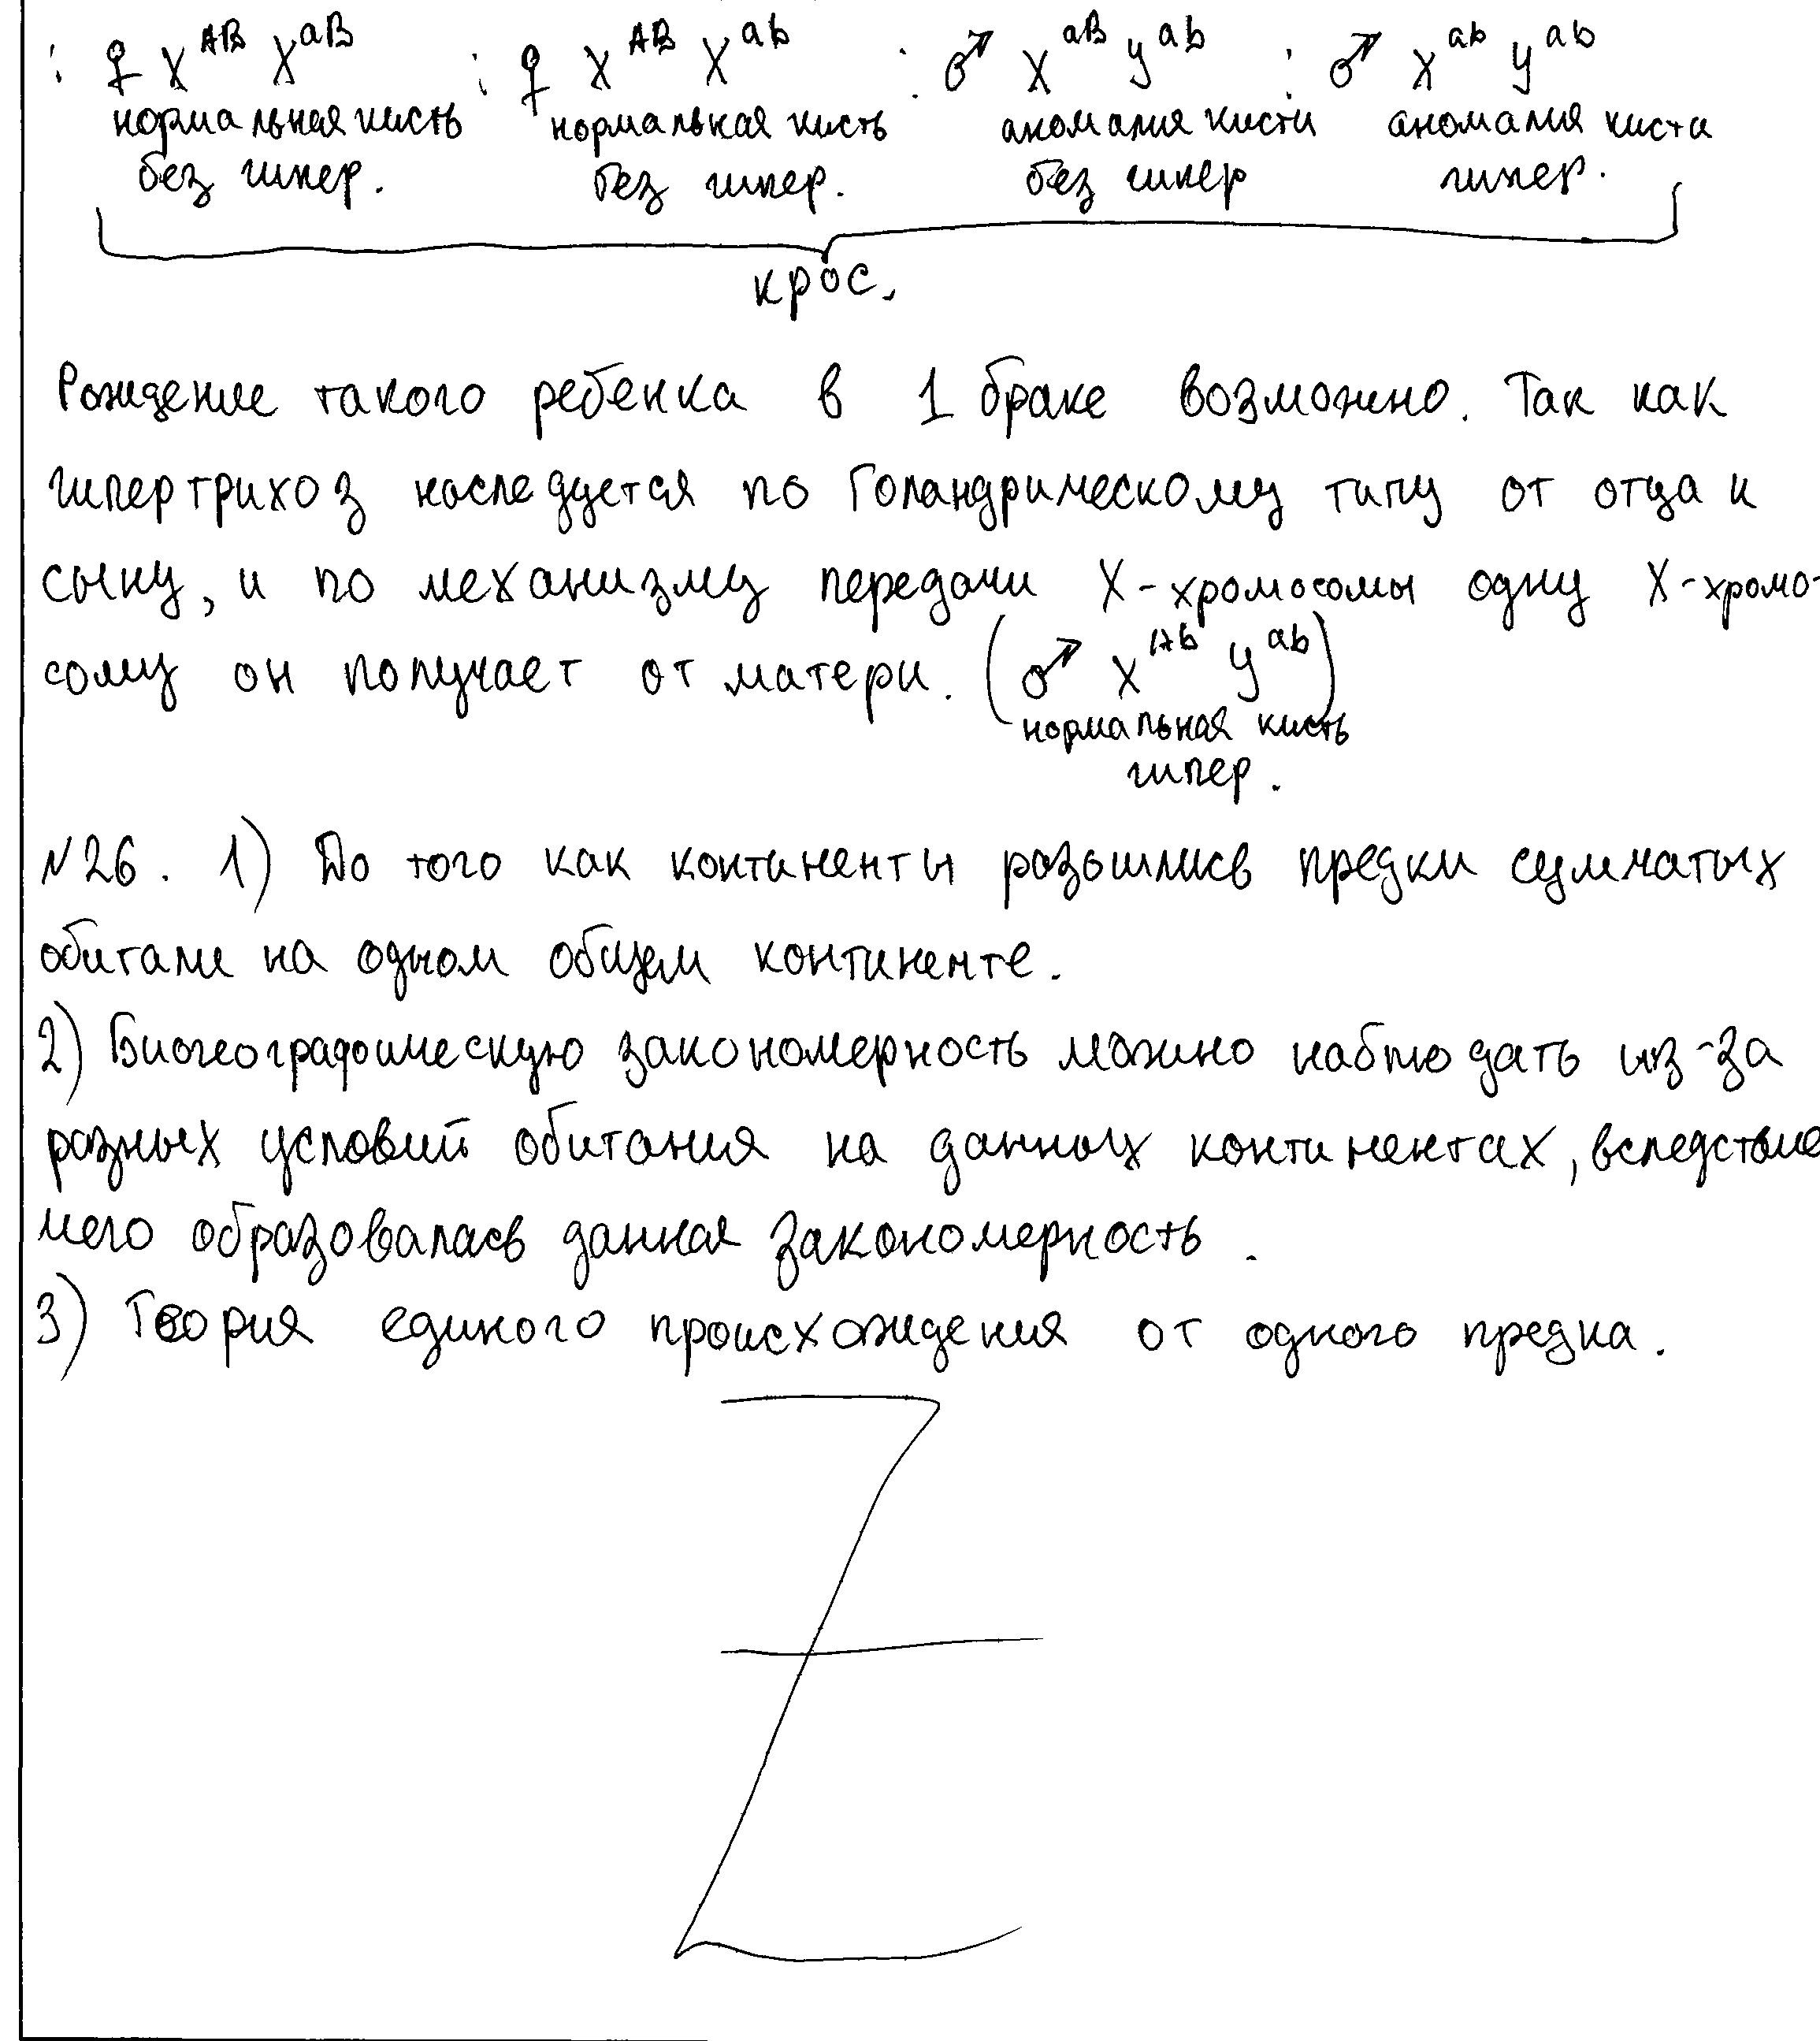 : ♀ X^AB X^aB ; ♀ X^AB X^ab : ♂ X^aB y^ab : ♂ X^ab y^ab
нормальная кисть нормальная кисть аномалия кисти аномалия кисти
без гипер. без гипер. без гипер гипер.
крос.
Рождение такого ребенка в 1 браке возможно. Так как
гипертрихоз наследуется по Голандрическому типу от отца к
сыну, и по механизму передачи X-хромосомы одну X-хромо-
сому он получает от матери. (♂ X^Ab y^ab)
нормальная кисть
гипер.
№26. 1) До того как континенты разошлись предки сумчатых
обитали на одном общем континенте.
2) Биогеографическую закономерность можно наблюдать из-за
разных условий обитания на данных континентах, вследствие
чего образовалась данная закономерность.
3) Теория единого происхождения от одного предка.
Z